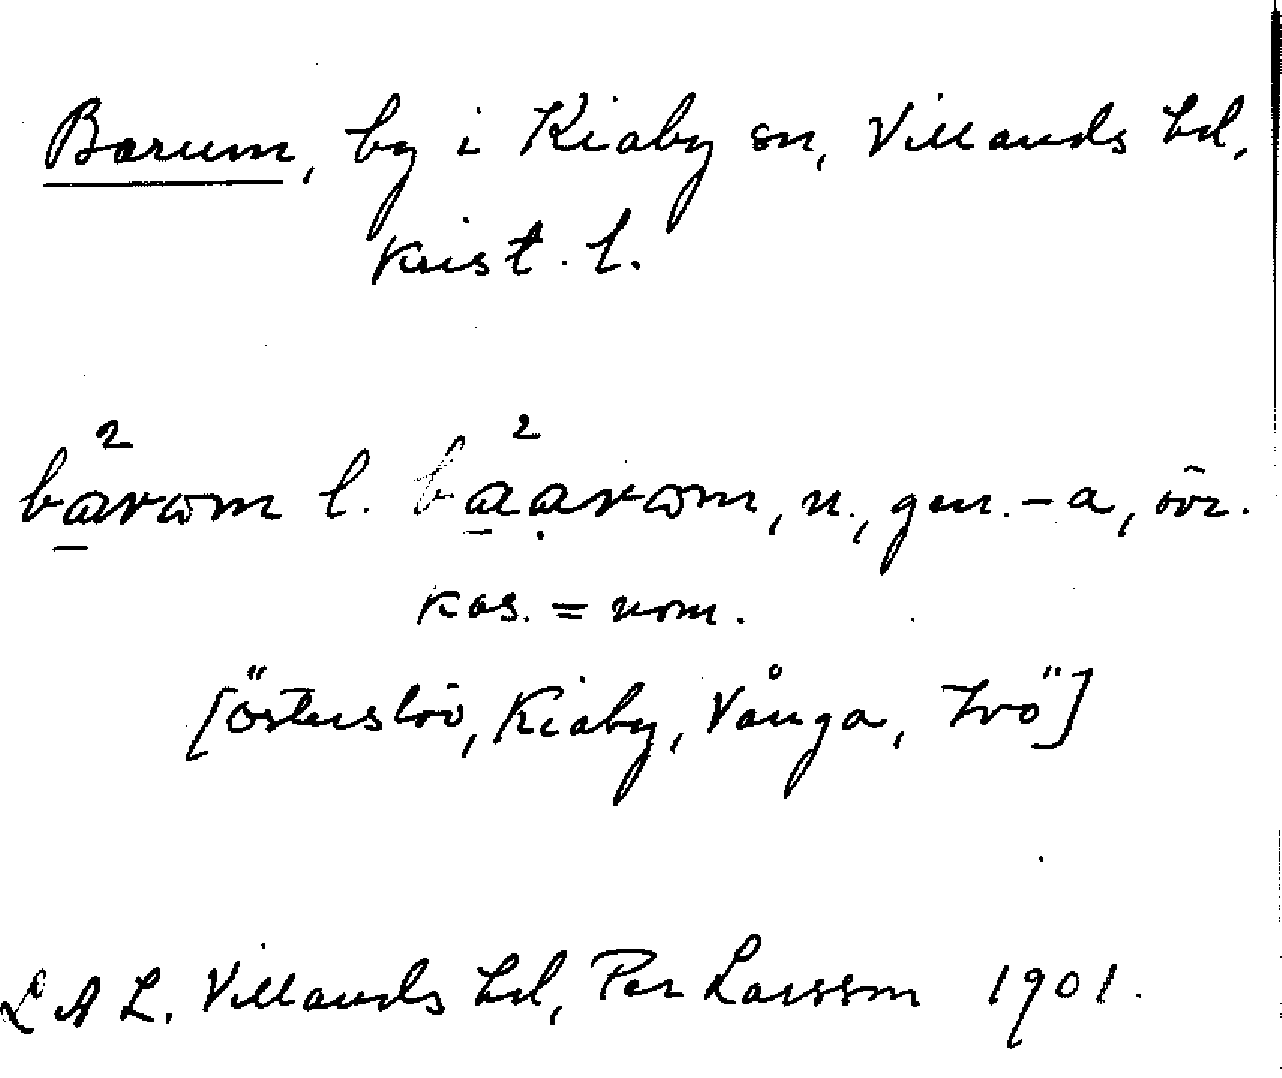 Barum, by i Kiaby sn, Villands hd,
Krist. l.
ba̲²rωm l. ba̲²ạrωm, n., gen. -a, övr.
kas. = nom.
[Österslöv, Kiaby, Vånga, Ivö]
LAL. Villands hd, Per Larsson 1901.